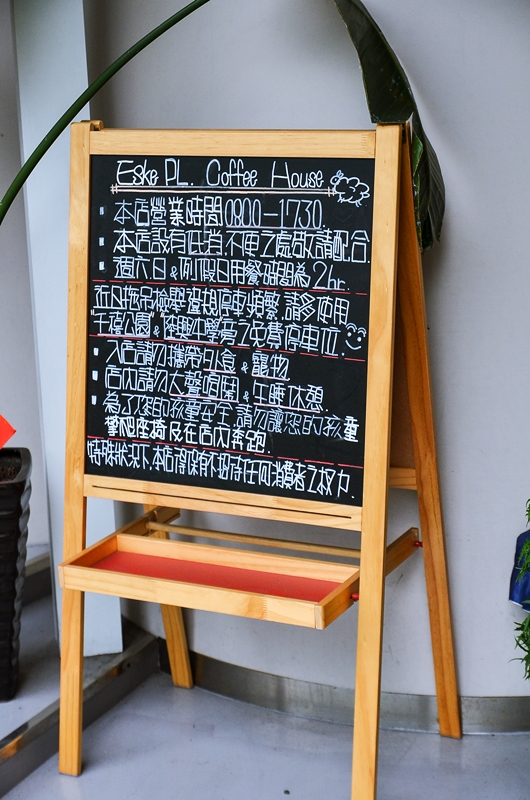 Eske PL. Coffee House
本店營業時間 0800-1730.
本店設有低消,不便之處敬請配合.
週六日&例假日用餐時間為 2hr.
近日拖吊檢舉違規停車頻繁,請多使用
"千禧公園"&復興小學旁之免費停車位.
入店請勿攜帶外食&寵物.
店內請勿人聲喧鬧&午睡休憩.
為了您的孩童安全 請勿讓您的孩童
攀爬座椅及在店內奔跑.
特殊狀況下,本店得保有不招待任何消費者之权力.